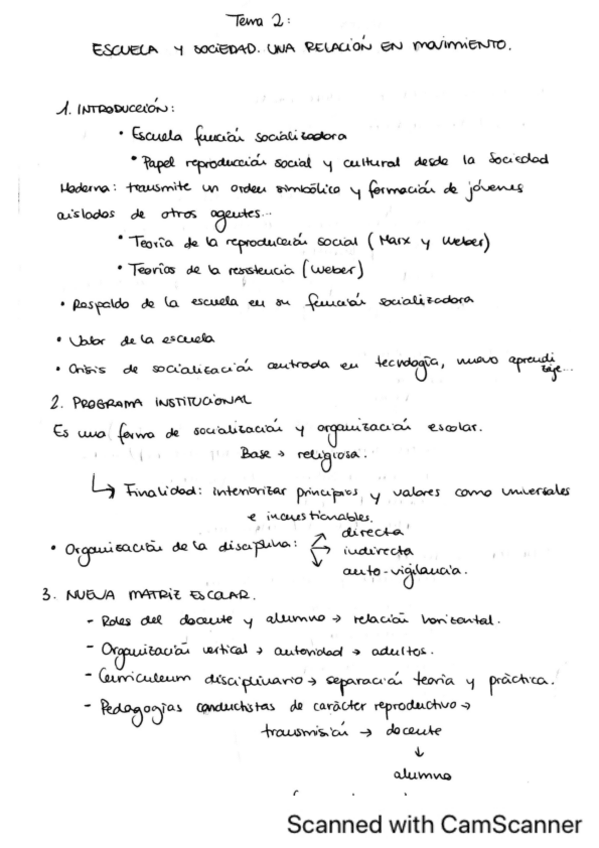 Tema 2:
ESCUELA Y SOCIEDAD. UNA RELACIÓN EN MOVIMIENTO.
1. INTRODUCCIÓN:
• Escuela función socializadora
• Papel reproducción social y cultural desde la Sociedad
Moderna: transmite un orden simbólico y formación de jóvenes
aislados de otros agentes...
• Teoría de la reproducción social (Marx y Weber)
• Teorías de la resistencia (Weber)
• Respaldo de la escuela en su función socializadora
• Valor de la escuela
• Crisis de socialización centrada en tecnología, nuevo aprendi
zaje...
2. PROGRAMA INSTITUCIONAL
Es una forma de socialización y organización escolar.
Base → religiosa.
↳ Finalidad: interiorizar principios y valores como universales
e incuestionables.
directa
• Organización de la disciplina: → indirecta
auto-vigilancia.
3. NUEVA MATRIZ ESCOLAR.
- Roles del docente y alumno → relación horizontal.
- Organización vertical → autoridad → adultos.
- Curriculeum disciplinario → separación teoría y práctica.
- Pedagogías conductistas de carácter reproductivo →
transmisión → docente
↓
alumno
Scanned with CamScanner